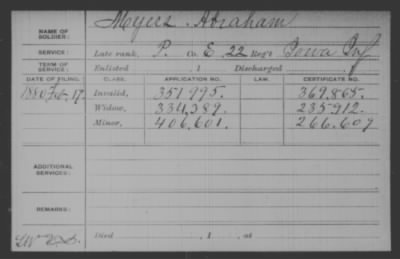 NAME OF SOLDIER: Myers Abraham
SERVICE: Late rank, P. Co. E, 22 Reg't Iowa Inf
TERM OF SERVICE: Enlisted , 1 Discharged
DATE OF FILING. CLASS. APPLICATION NO. LAW. CERTIFICATE NO.
1880 Feb. 17 Invalid, 351.995. 369.865.
Widow, 334,389. 235.912.
Minor, 406,601. 266.607
ADDITIONAL SERVICES:
REMARKS:
Died , 1 , at